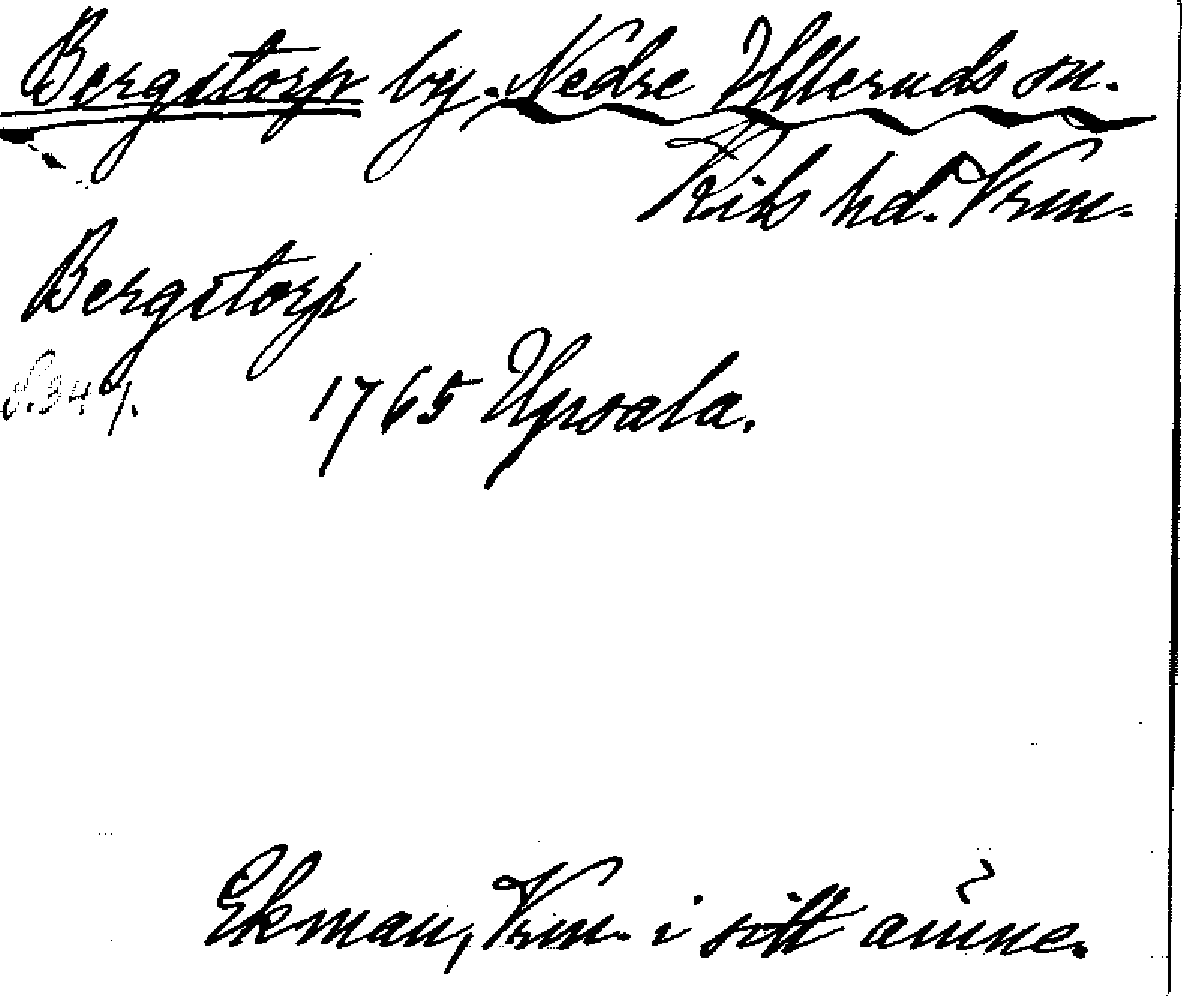 Bergstorp by. Nedre Ulleruds sn.
Kils hd. Vrm.
Bergstorp
S. 347.
1765 Upsala.
Ekman, Vrm. i sitt ämne.